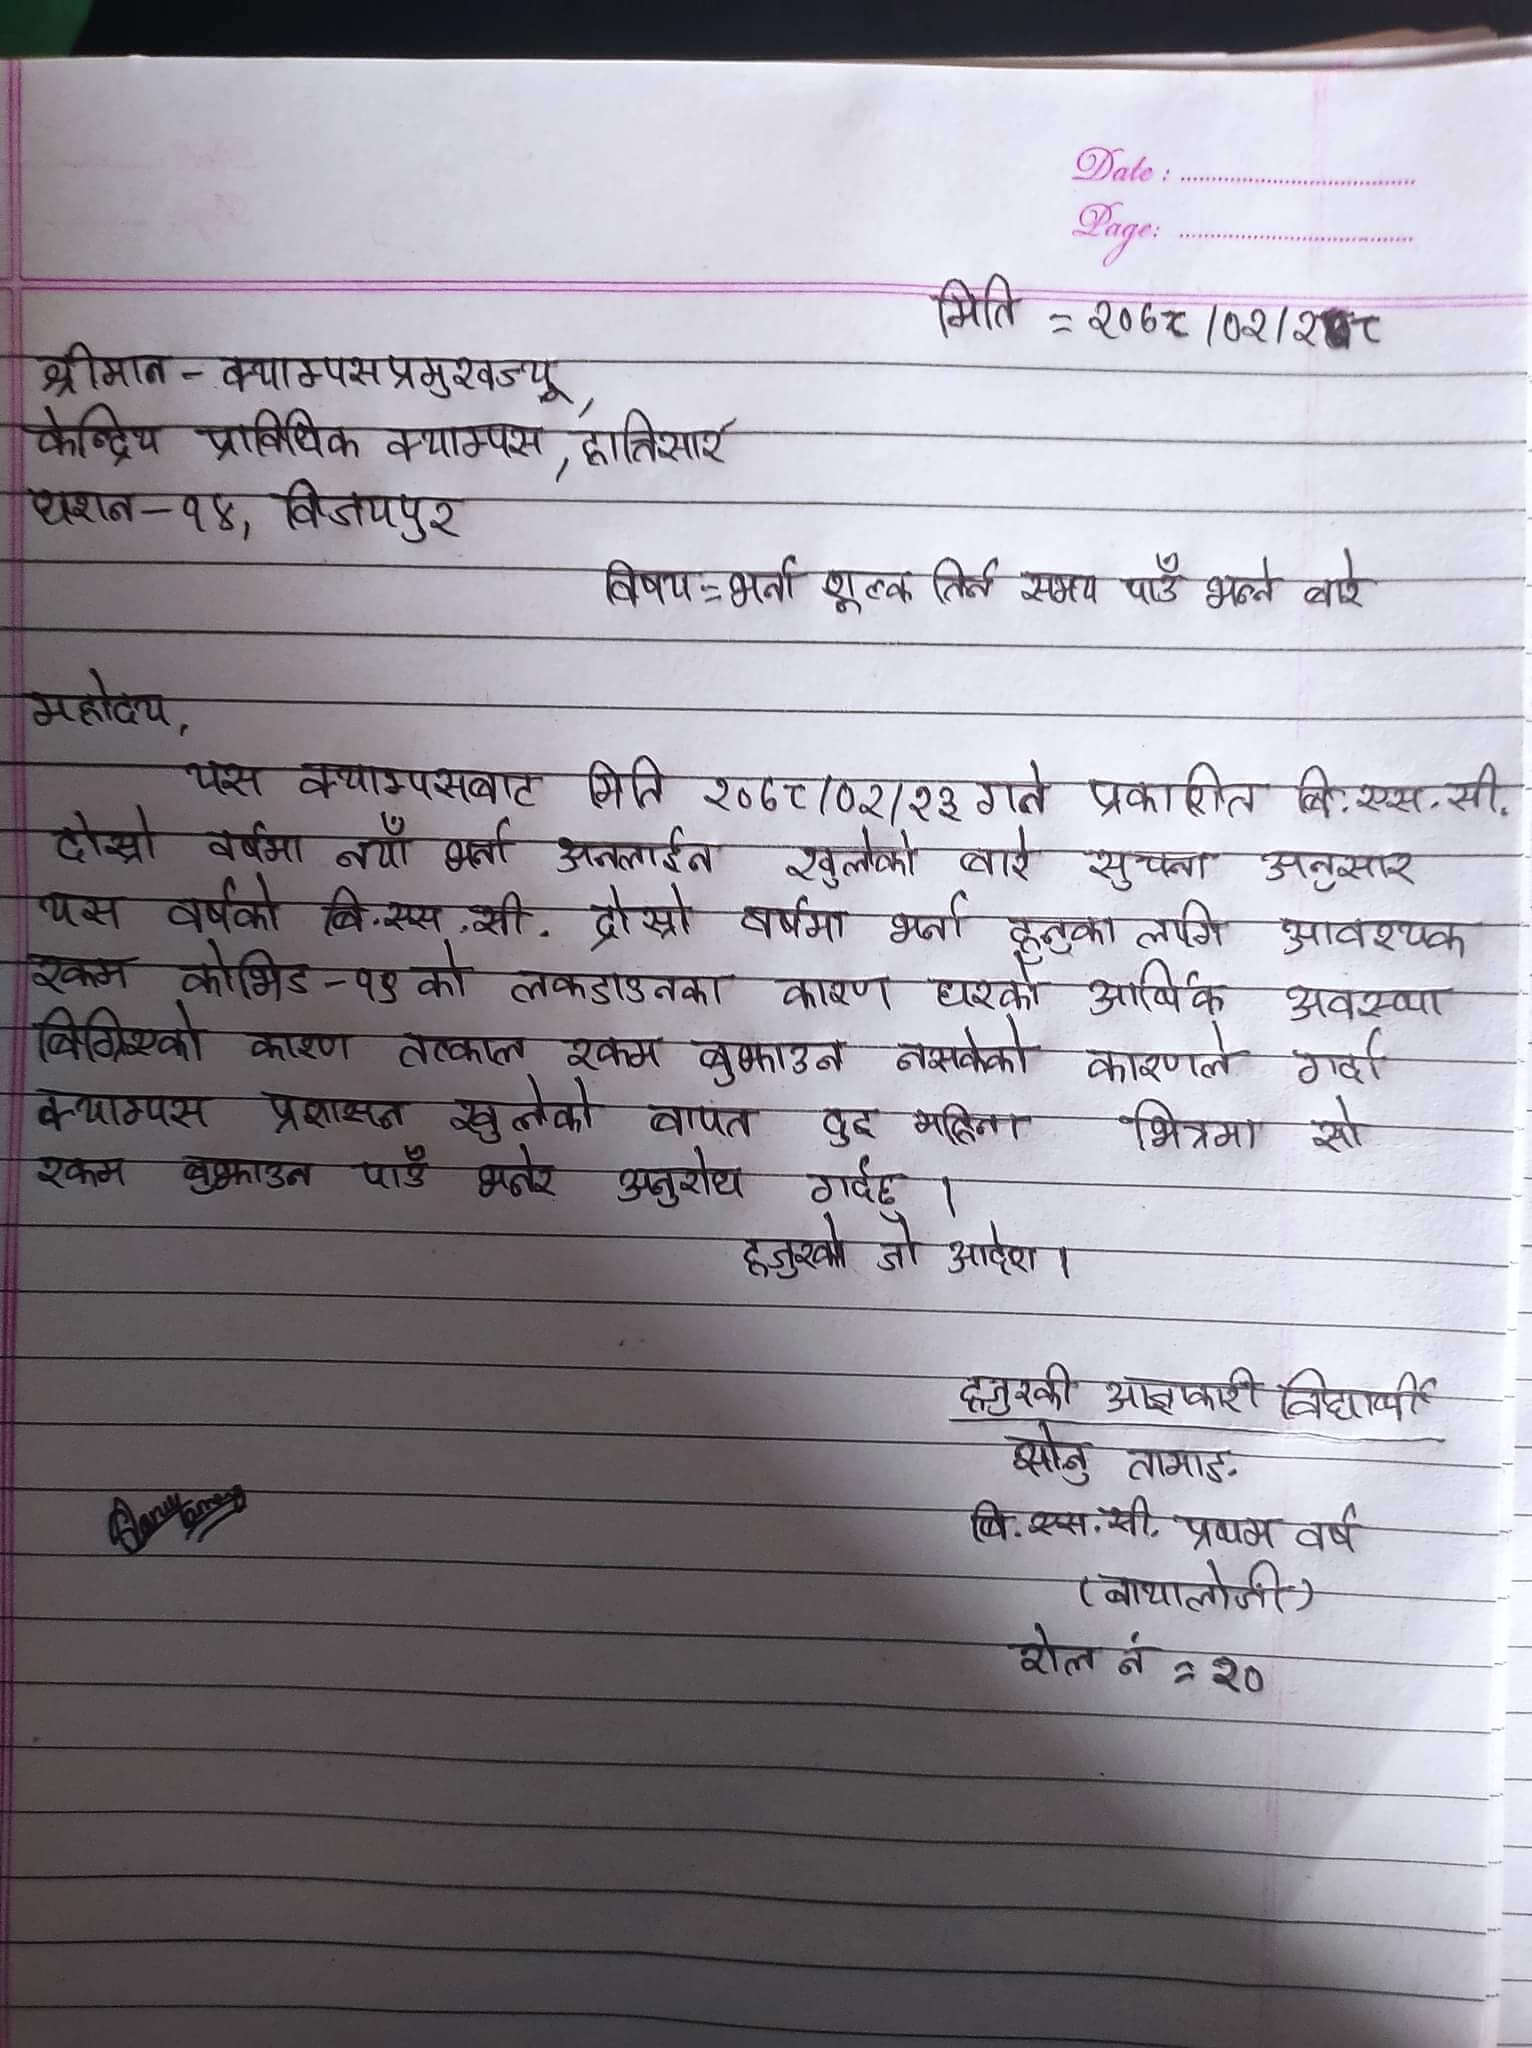 Date :
Page:
मिति = २०७८/०२/२८
श्रीमान - क्याम्पस प्रमुखज्यू,
केन्द्रिय प्राविधिक क्याम्पस, हातिसार
धरान - १४, विजयपुर
विषय = भर्ना शूल्क तिर्न समय पाउँ भन्ने बारे
महोदय,
यस क्याम्पसबाट मिति २०७८/०२/२३ गते प्रकाशित बि.एस.सी.
दोस्रो वर्षमा नयाँ भर्ना अनलाईन खुलेको बारे सुचना अनुसार
यस वर्षको बि.एस.सी. दोस्रो वर्षमा भर्ना हुनुका लागि आवश्यक
रकम कोभिड - १९ को लकडाउनका कारण घरको आर्थिक अवस्था
बिग्रिएको कारण तत्काल रकम बुझाउन नसकेको कारणले गर्दा
क्याम्पस प्रशासन खुलेको बापत दुइ महिना भित्रमा सो
रकम बुझाउन पाउँ भनेर अनुरोध गर्दछु ।
हजुरको जो आदेश ।
हजुरकी आज्ञाकारी विद्यार्थी
सोनु तामाङ
बि.एस.सी. प्रथम वर्ष
(बायोलोजी)
रोल नं = २०